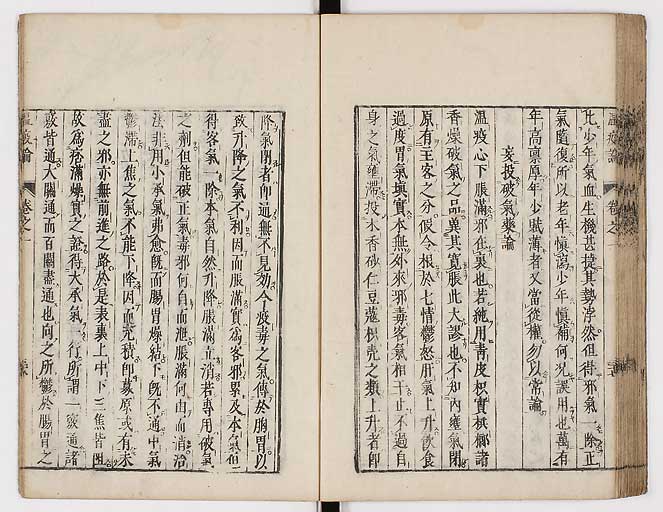 化少年氣血生機甚捷其勢浡然但得邪氣一除正
氣隨復所以老年慎瀉少年慎補何况誤用也萬有
年高禀厚年少賦薄者又當從權勿以常論
妄投破氣藥論
溫疫心下脹滿邪在裏也若純用青皮枳實梹榔諸
香燥破氣之品冀其寬脹此大謬也不知內壅氣閉
原有主客之分假令根於七情鬱怒肝氣上升飲食
過度胃氣填實本無外來邪毒客氣相干止不過自
身之氣壅滯投木香砂仁荳蔻枳壳之類上升者即
降氣閉者即通無不見効今疫毒之氣傳於胸胃以
致升降之氣不利因而脹滿實爲客邪累及本氣但
得客氣一除本氣自然升降脹滿立消若專用破氣
之劑但能破正氣毒邪何自而泄脹滿何由而消治
法非用小承氣弗愈旣而腸胃燥結下旣不通中氣
鬱滯上焦之氣不能下降因而充積即募原或有未
盡之邪亦無前進之路於是表裏上中下三焦皆阻
故爲痞滿燥實之證得大承氣一行所謂一竅通諸
竅皆通大關通而百關盡通也向之所鬱於腸胃之
溫疫論
卷之一